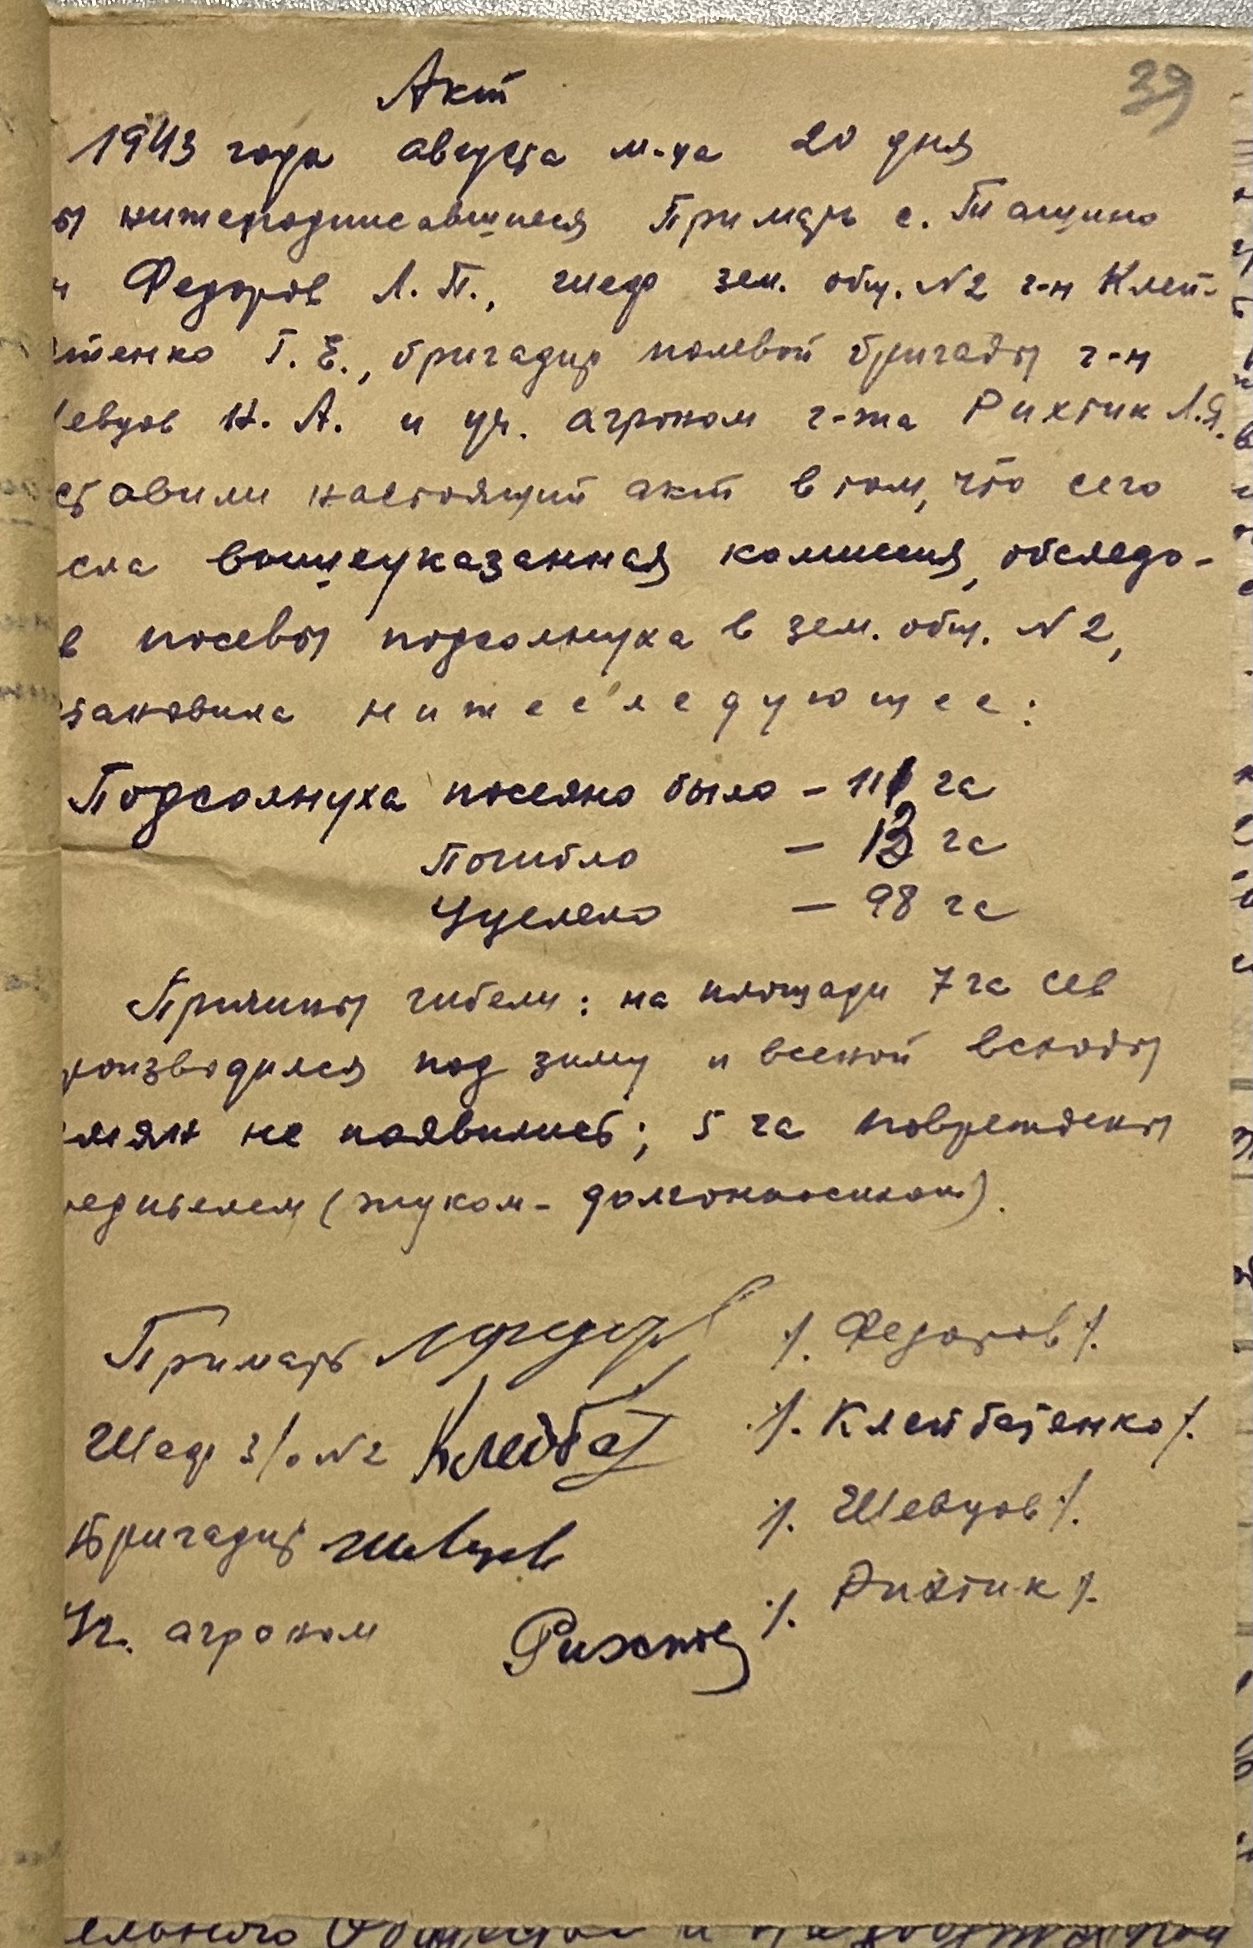 39
Акт
1943 года августа м-ца 20 дня
ы нижеподписавшиеся Примарь с. Тащино
н Федоров Л. П., шеф зем. общ. №2 г-н Клей-
тенко Г. Е., бригадир полевой бригады г-н
евцов Н. А. и уч. агроном г-жа Рихтик Л.Я.
ставили настоящий акт в том, что сего
сла вышеуказанная комиссия, обследо-
в посевы подсолнуха в зем. общ. №2,
тановила нижеследующее:
Подсолнуха посеяно было - 111 га
Погибло - 13 га
Уцелело - 98 га
Причины гибели: на площади 7 га сев
роизводился под зиму и весной всходы
емян не появились; 5 га повреждены
редителем (жуком-долгоносиком).
Примарь ЛФедоров /. Федоров /.
Шеф з/о №2 Клейбат /. Клейбатенко /.
Бригадир Шевцов /. Шевцов /.
Уч. агроном Рихтик /. Рихтик /.
ельного